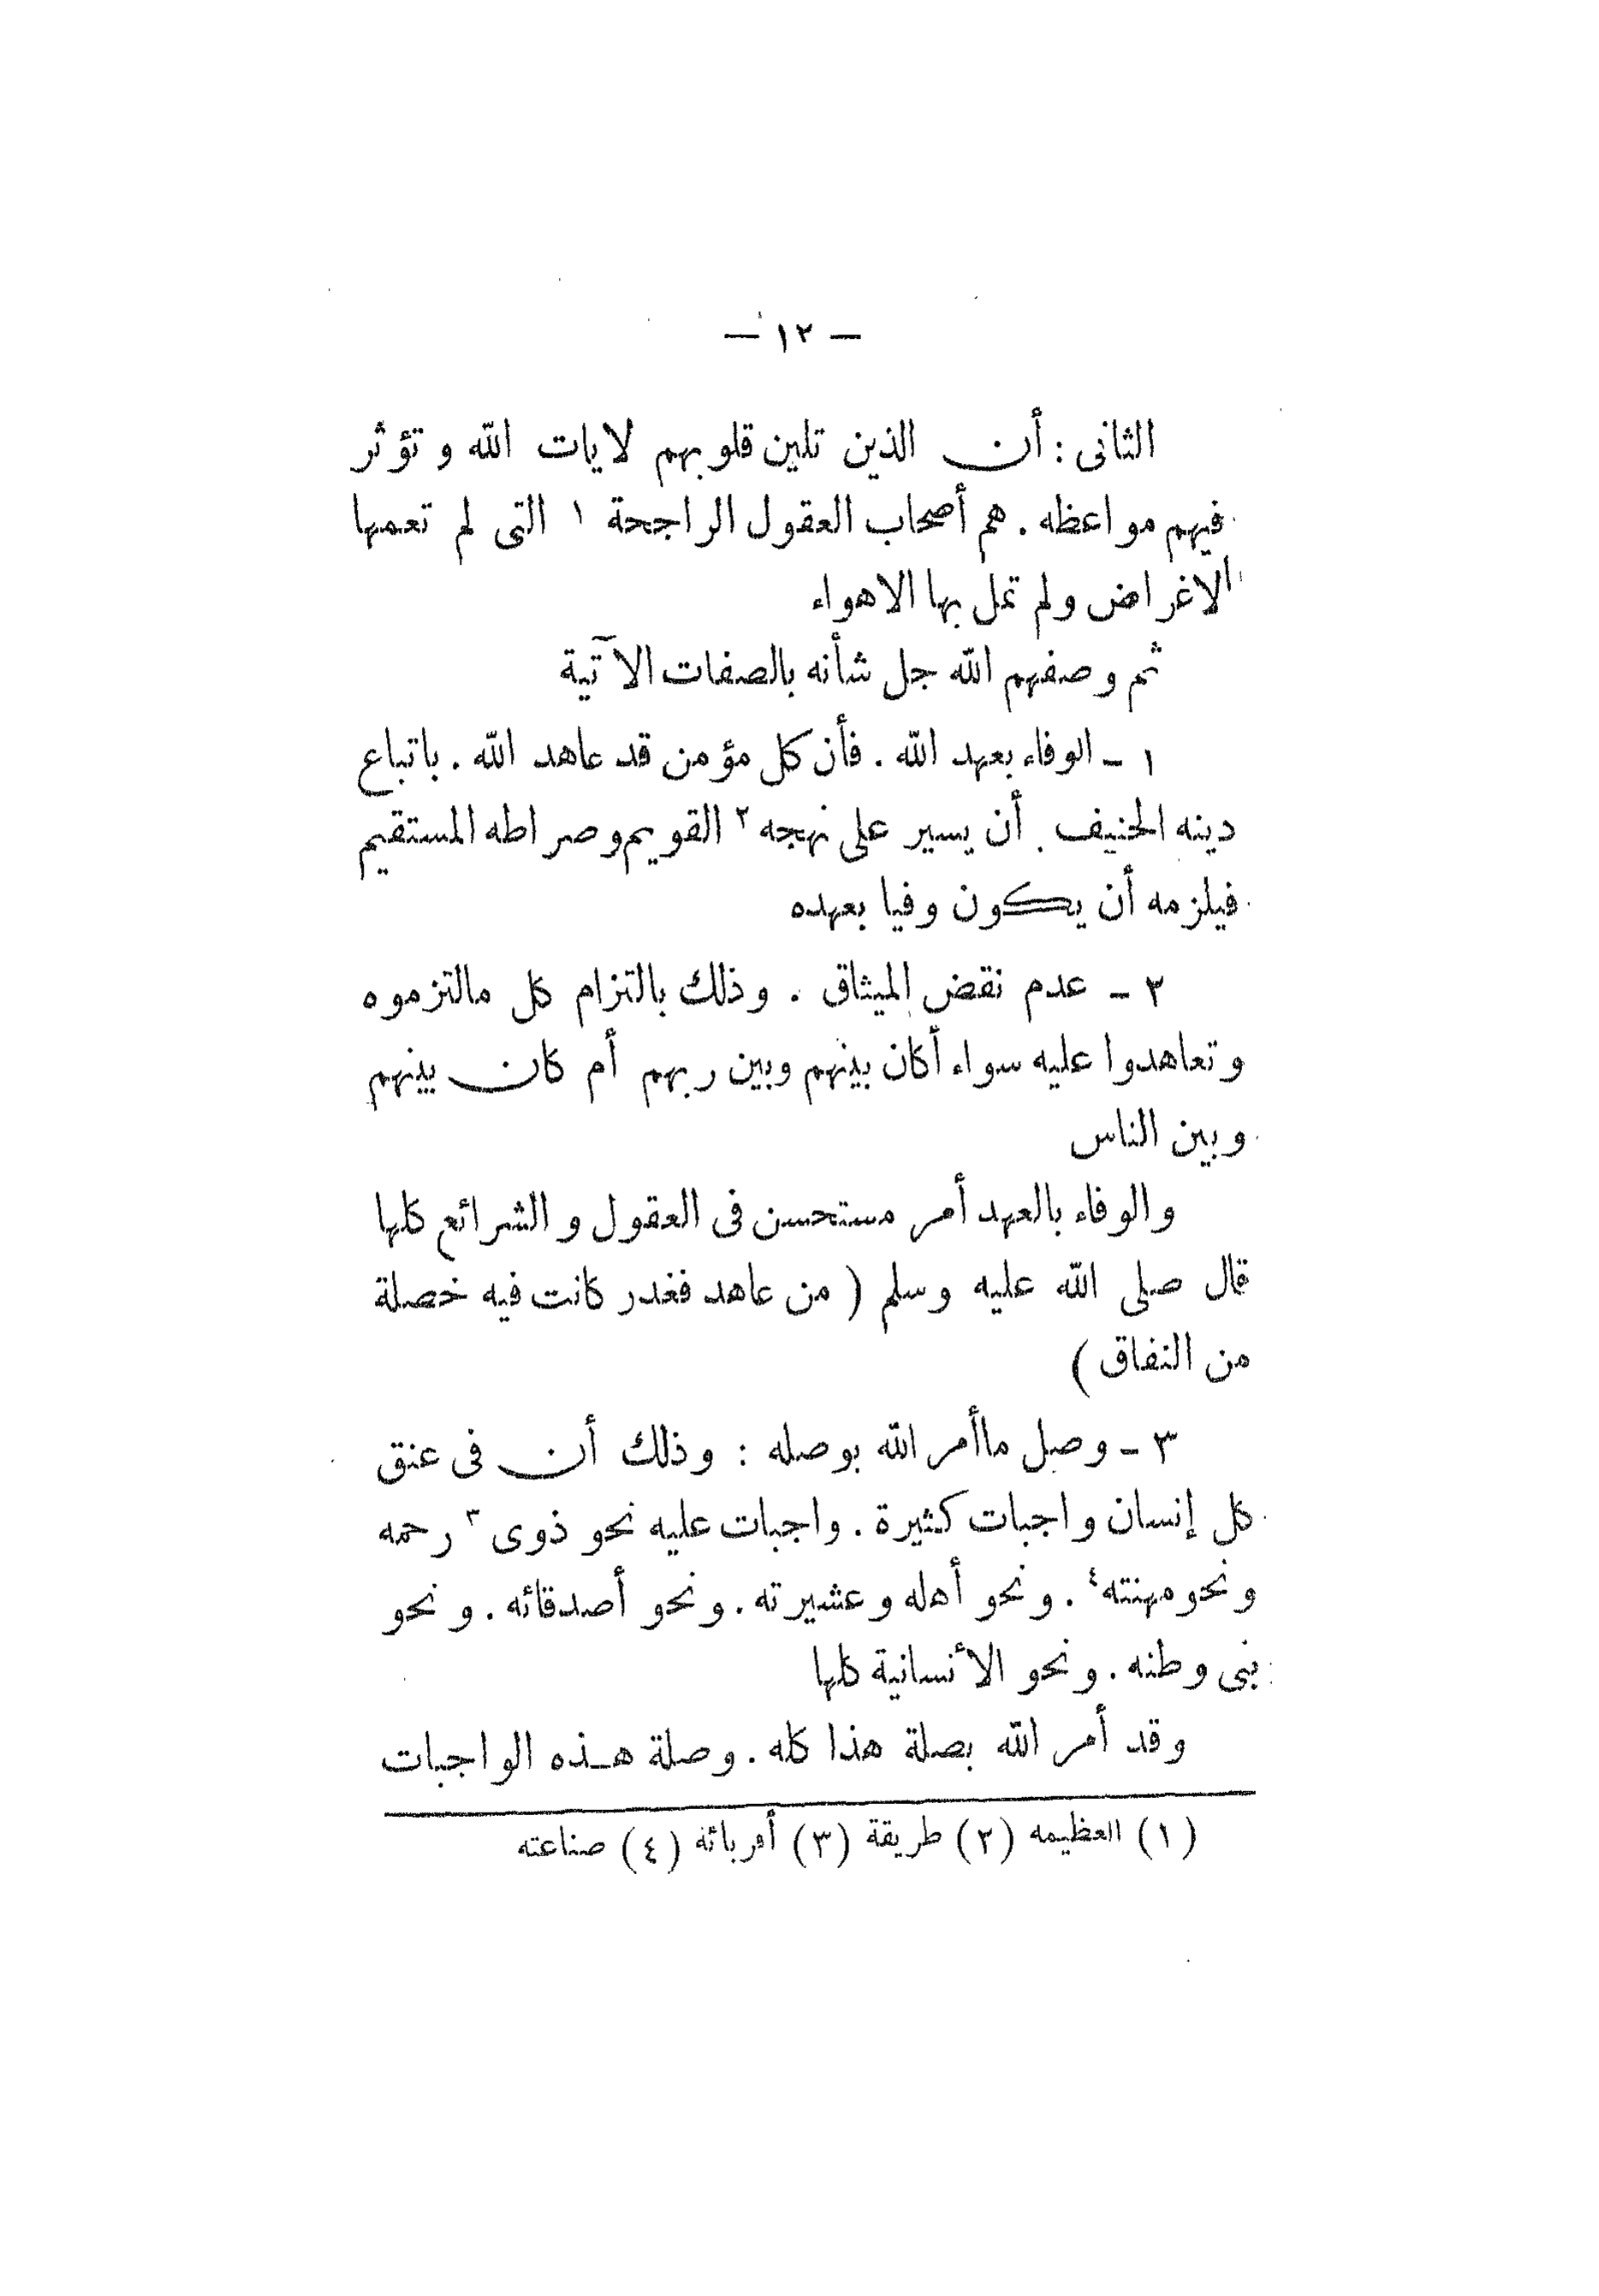 — ١٢ —
الثانى : أن الذين تلين قلوبهم لايات الله وتؤثر
فيهم مواعظه . هم أصحاب العقول الراجحة ١ التى لم تعمها
الاغراض ولم تمل بها الاهواء
ثم وصفهم الله جل شأنه بالصفات الآتية
١ - الوفاء بعهد الله . فأن كل مؤمن قد عاهد الله . باتباع
دينه الحنيف . أن يسير على نهجه ٢ القويم وصراطه المستقيم
فيلزمه أن يكون وفيا بعهده
٢ - عدم نقض الميثاق . وذلك بالتزام كل مالتزموه
وتعاهدوا عليه سواء أكان بينهم وبين ربهم أم كان بينهم
وبين الناس
والوفاء بالعهد أمر مستحسن فى العقول والشرائع كلها
قال صلى الله عليه وسلم ( من عاهد فغدر كانت فيه خصلة
من النفاق )
٣ - وصل ماأمر الله بوصله : وذلك أن فى عنق
كل إنسان واجبات كثيرة . واجبات عليه نحو ذوى ٣ رحمه
ونحو مهنته ٤ . ونحو أهله وعشيرته . ونحو أصدقائه . ونحو
بنى وطنه . ونحو الأنسانية كلها
وقد أمر الله بصلة هذا كله . وصلة هـذه الواجبات
(١) العظيمه (٢) طريقة (٣) أقربائه (٤) صناعته